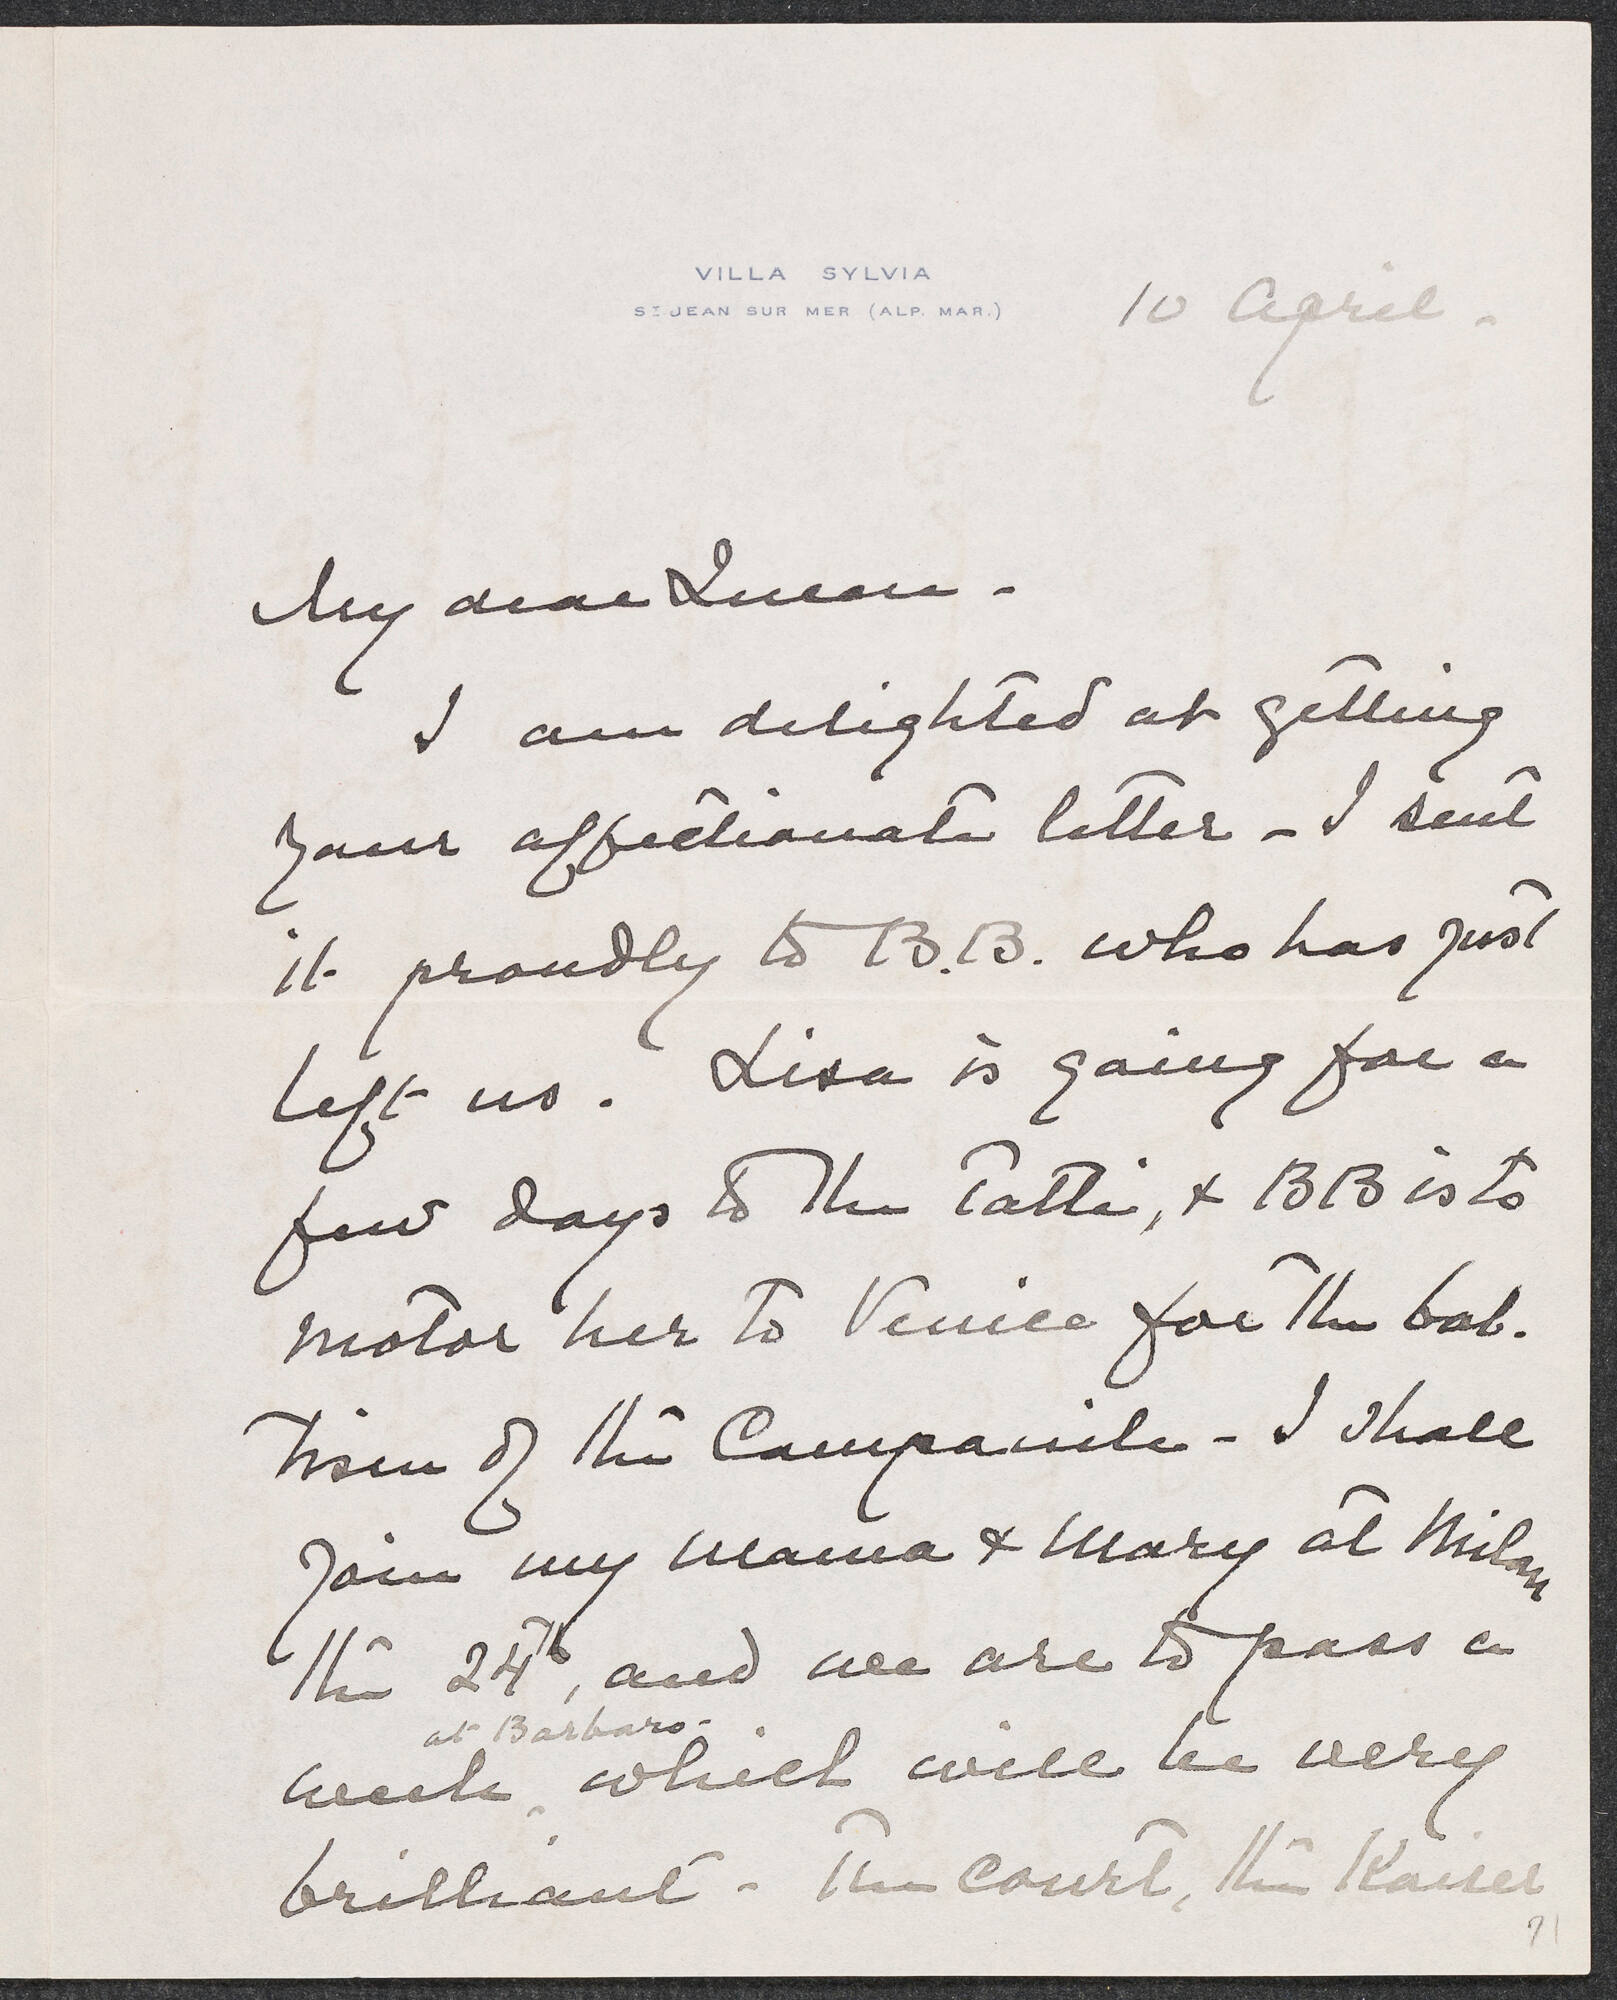 VILLA SYLVIA
ST JEAN SUR MER (ALP. MAR.)
10 April -
My dear Queen -
I am delighted at getting
your affectionate letter - I sent
it proudly to B.B. who has just
left us. Lisa is going for a
few days to the Tatti, + BB is to
motor her to Venice for the bab-
tism of the Campanile - I shall
join my Mama + Mary at Milan
the 24th, and we are to pass a
at Barbaro -
week, which will be very
brilliant - The Court, the Kaiser
71